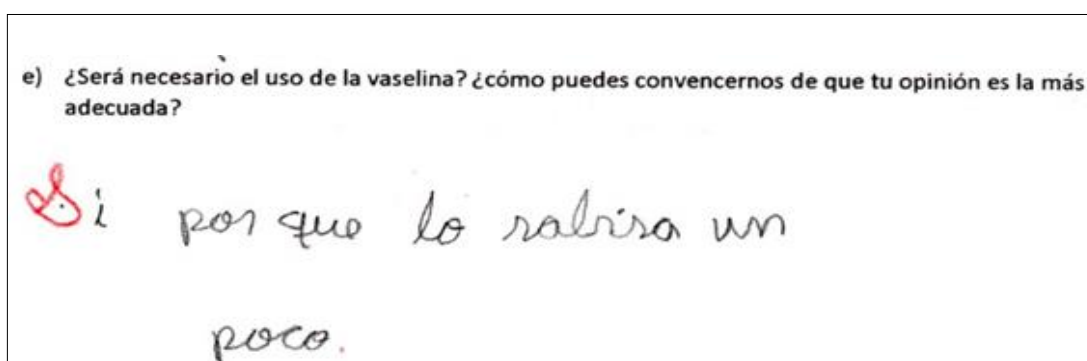 e) ¿Será necesario el uso de la vaselina? ¿cómo puedes convencernos de que tu opinión es la más
adecuada?
Si por que lo un
poco.